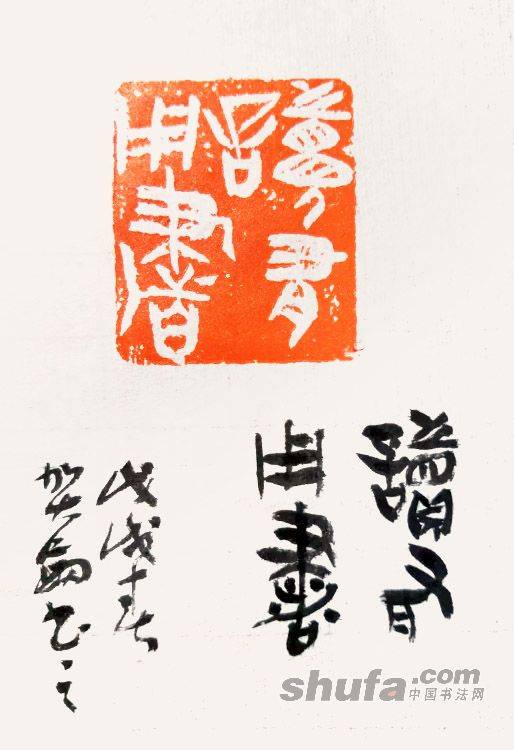 讀有
用書
讀有
用書
戊戌春
書之
shufa.com
中国书法网